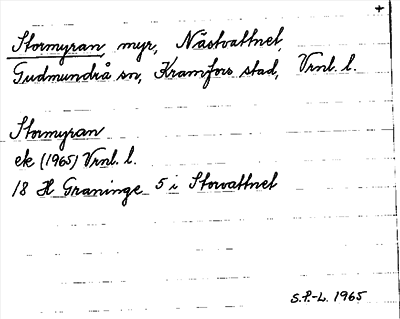 +
Stormyran, myr, Nästvattnet,
Gudmundrå sn, Kramfors stad, Vrnl. l.
Stormyran
ek (1965) Vrnl. l.
18 H Graninge 5 i Storvattnet
S.P.-L. 1965